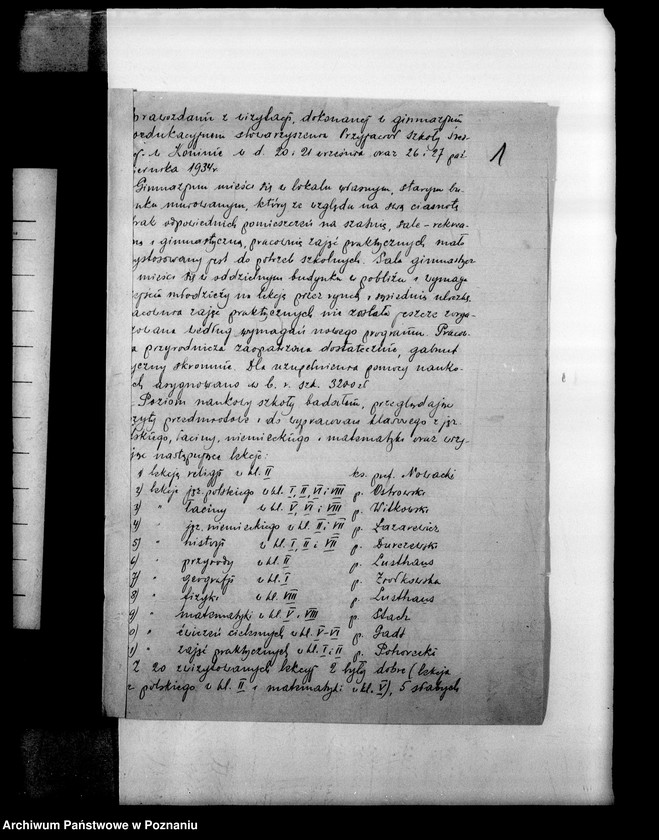 prawozdanie z wizytacji, dokonanej w gimnazjum
oedukacyjnem stowarzyszenia Przyjaciół Szkoły Śred-
ej w Koninie w d. 20 i 21 września oraz 26 i 27 paź
iernika 1934 r.
1
Gimnazjum mieści się w lokalu własnym, starym bu-
nku murowanym, który ze względu na swą ciasnotę
brak odpowiednich pomieszczeń na szatnię, sale-rekrea-
ną i gimnastyczną, pracownię zajęć praktycznych mało
ystosowany jest do potrzeb szkolnych. Sala gimnastycz
mieści się w oddzielnym budynku w pobliżu i wymaga
ejścia młodzieży na lekcję przez rynek i
acownia zajęć praktycznych nie została jeszcze zorga-
zowana według wymagań nowego programu. Pracow-
a przyrodnicza zaopatrzona dostatecznie, gabinet
yczny skromnie. Dla uzupełnienia pomocy nauko-
ch asygnowano w b. r. szk. 3200 zł
Poziom naukowy szkoły badałem, przeglądając
zyty przedmiotowe i do wypracowań klasowego z jęz.
lskiego, łaciny, niemieckiego i matematyki oraz wizy-
jąc następujące lekcje:
1) lekcję religji w kl. II ks. pref. Nowacki
2) lekcje jęz. polskiego w kl. I, II, VI i VIII p. Ostrowski
3) " łaciny w kl. V, VI i VIII p. Witkowski
4) " jęz. niemieckiego w kl. II i VII p. Łazarewicz
5) " historji w kl. I, II i VII p. Durczewski
6) " przyrody w kl. II p. Lusthaus
7) " geografji w kl. I p. Ziółkowska
8) " fizyki w kl. VIII p. Lusthaus
9) " matematyki w kl. V i VIII p. Stach
0) " ćwiczeń cielesnych w kl. V-VI p. Gadt
1) " zajęć praktycznych w kl. I i II p. Pohorecki
Z 20 zwizytowanych lekcyj 2 były dobre (lekcja
z polskiego w kl. II i matematyki w kl. V), 5 słabych
Archiwum Państwowe w Poznaniu